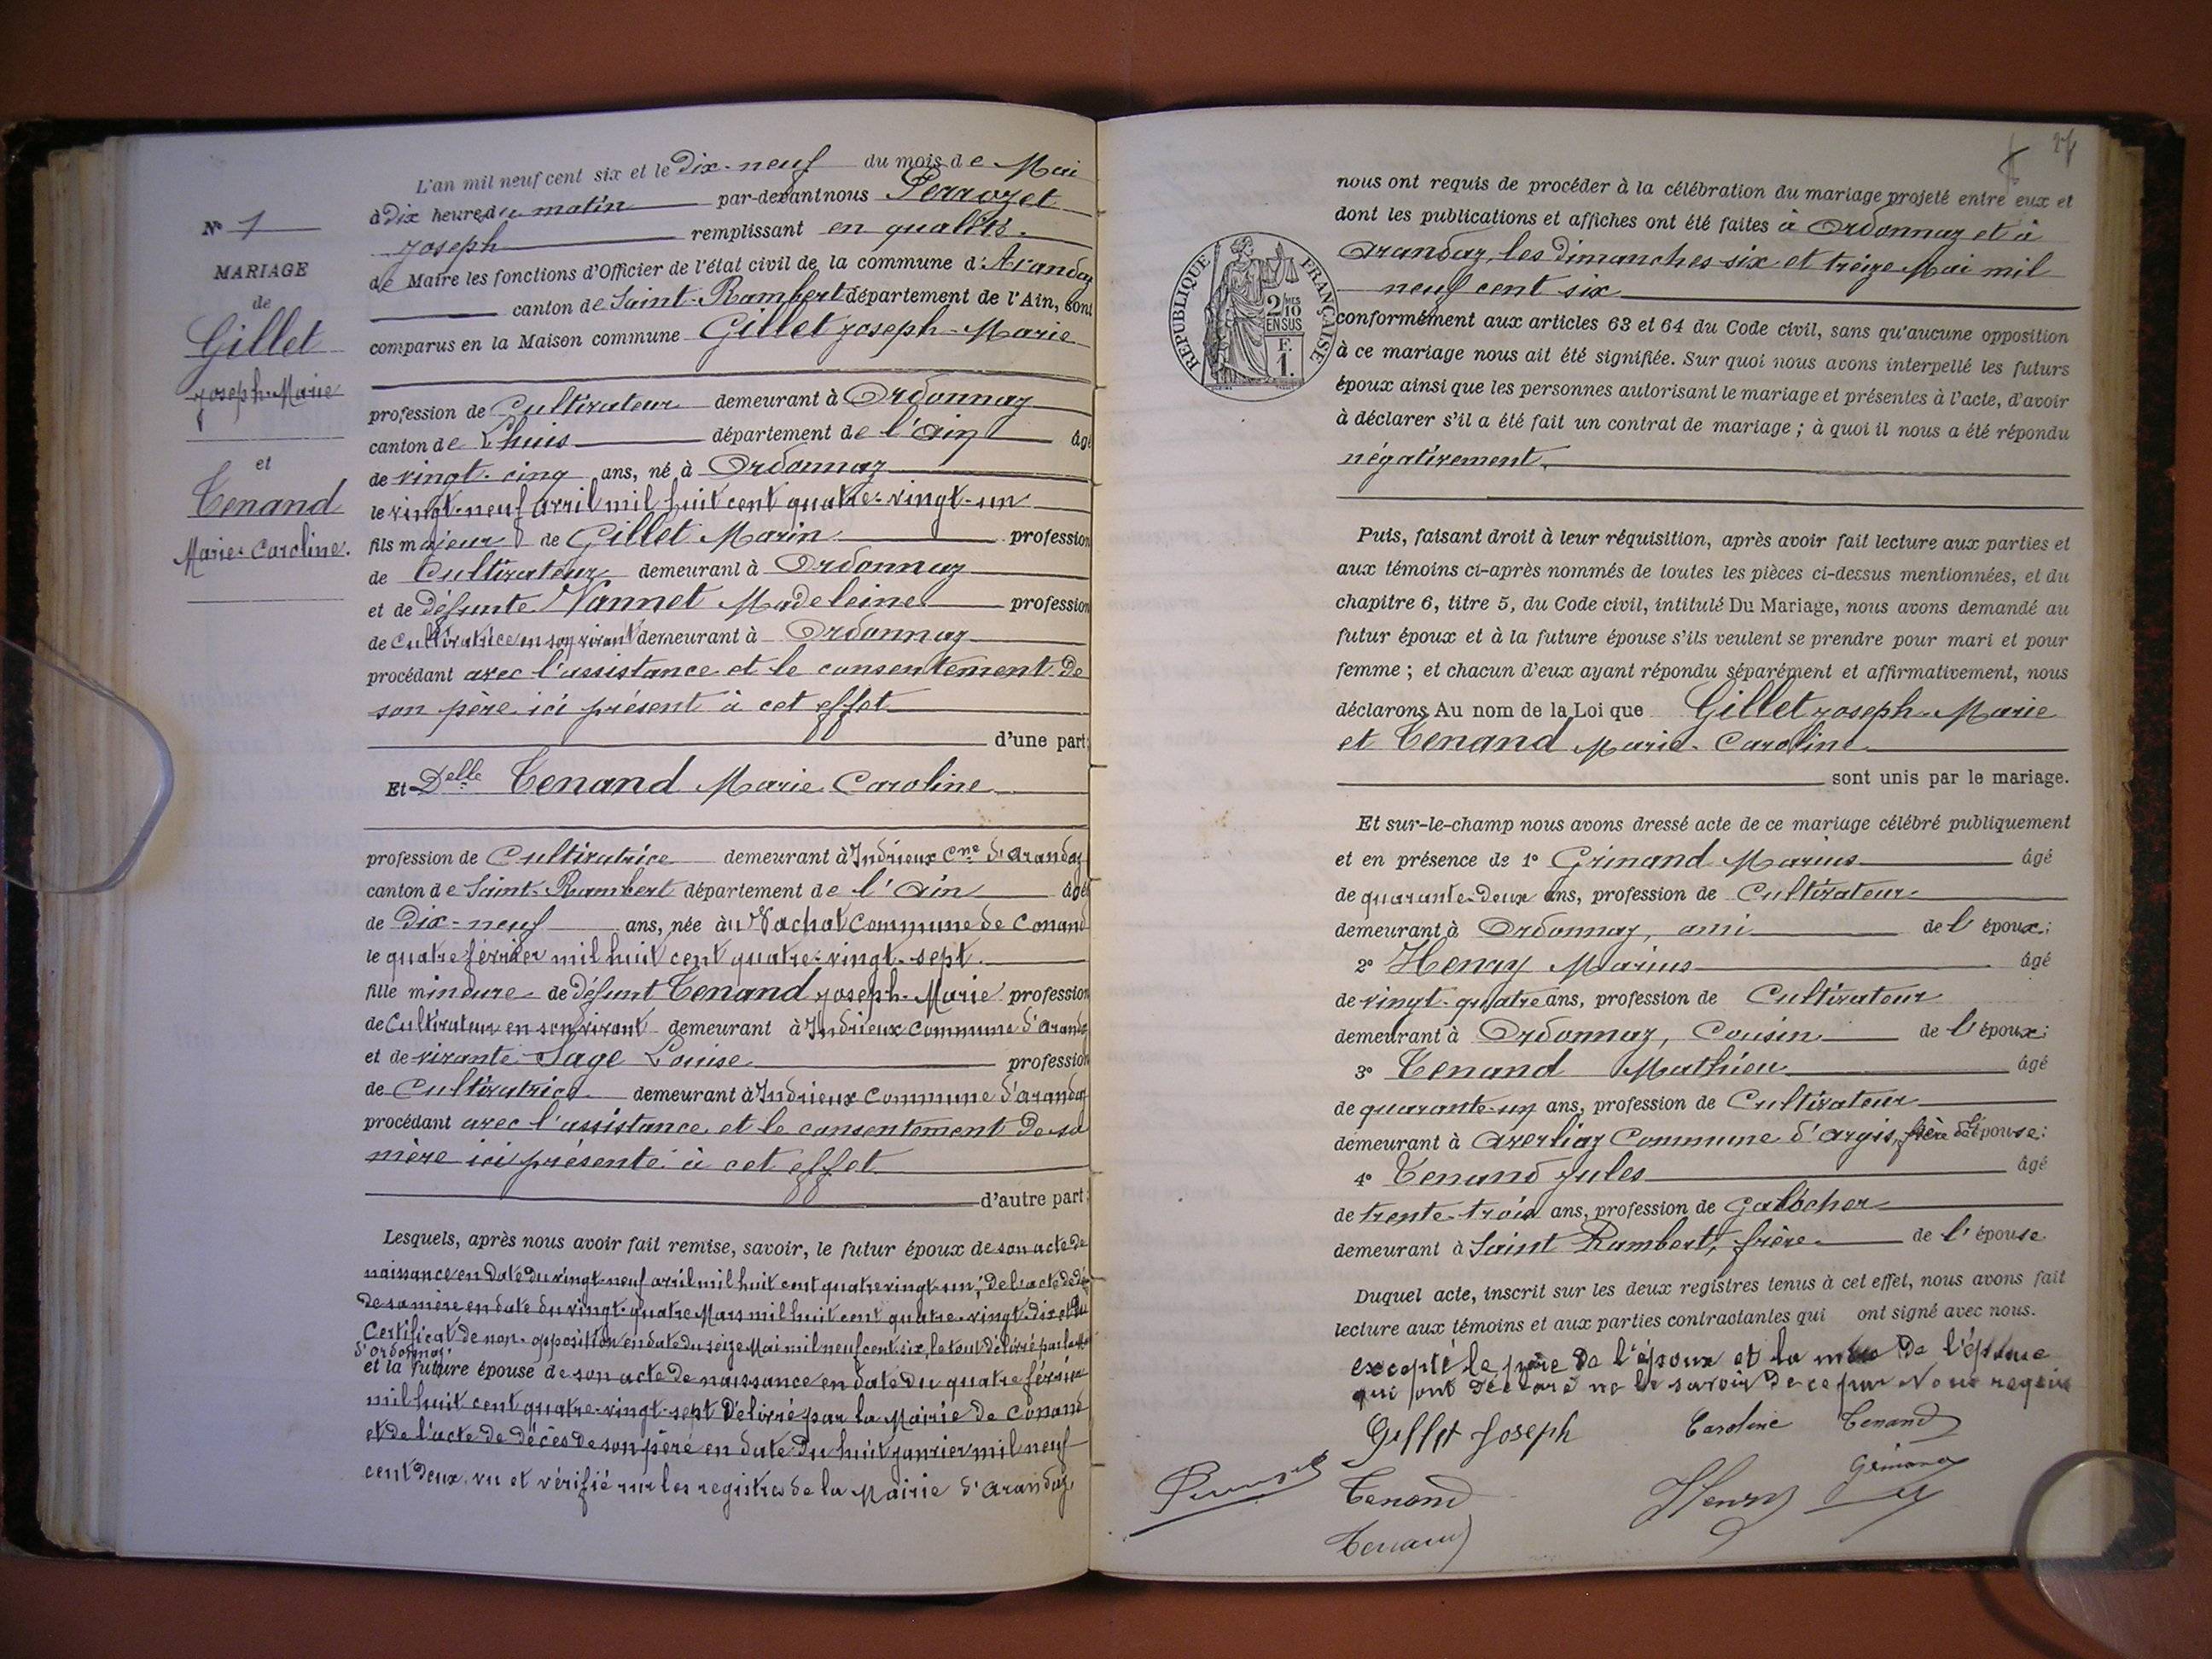 L'an mil neuf cent six et le Dix-neuf du mois de Mai
à Dix heures du matin par-devant nous Perrozet
Joseph remplissant en qualité
de Maire les fonctions d'Officier de l'état civil de la commune d'Arandaz
canton de Saint-Rambert département de l'Ain, sont
comparus en la Maison commune Gillet Joseph-Marie
N° 1
MARIAGE
de
Gillet
Joseph-Marie
et
Tenand
Marie-Caroline.
profession de Cultivateur demeurant à Ordonnaz
canton de Lhuis département de l'Ain âgé
de vingt-cinq ans, né à Ordonnaz
le vingt-neuf avril mil huit cent quatre-vingt-un
fils majeur de Gillet Marin profession
de Cultivateur demeurant à Ordonnaz
et de défunte Vannet Madeleine profession
de Cultivatrice en son vivant demeurant à Ordonnaz
procédant avec l'assistance et le consentement de
son père ici présent à cet effet
d'une part;
Et Delle Tenand Marie Caroline
profession de Cultivatrice demeurant à Indrieux Cne d'Arandaz
canton de Saint-Rambert département de l'Ain âgée
de Dix-neuf ans, née au Vachat Commune de Conand
le quatre février mil huit cent quatre-vingt-sept.
fille mineure de défunt Tenand Joseph-Marie profession
de Cultivateur en son vivant demeurant à Indrieux Commune d'Arandaz
et de vivante Sage Louise profession
de Cultivatrice demeurant à Indrieux Commune d'Arandaz
procédant avec l'assistance et le consentement de sa
mère ici présente à cet effet
d'autre part;
Lesquels, après nous avoir fait remise, savoir, le futur époux de son acte de
naissance en date du vingt-neuf avril mil huit cent quatre vingt-un; de l'acte de
de sa mère en date du vingt-quatre Mars mil huit cent quatre-vingt-dix et du
Certificat de non-opposition en date du seize Mai mil neuf cent six, le tout délivré par
d'Ordonnaz;
et la future épouse de son acte de naissance en date du quatre février
mil huit cent quatre-vingt-sept Délivré par la Mairie de Conand
et de l'acte de décès de son père en date du huit janvier mil neuf
cent deux, vu et vérifié sur les registres de la Mairie d'Arandaz,
nous ont requis de procéder à la célébration du mariage projeté entre eux et
dont les publications et affiches ont été faites à Ordonnaz et à
Arandaz, les dimanches six et treize Mai mil
neuf cent six
RÉPUBLIQUE FRANÇAISE
2/10MES
EN SUS
F.
1.
conformément aux articles 63 et 64 du Code civil, sans qu'aucune opposition
à ce mariage nous ait été signifiée. Sur quoi nous avons interpellé les futurs
époux ainsi que les personnes autorisant le mariage et présentes à l'acte, d'avoir
à déclarer s'il a été fait un contrat de mariage; à quoi il nous a été répondu
négativement.
Puis, faisant droit à leur réquisition, après avoir fait lecture aux parties et
aux témoins ci-après nommés de toutes les pièces ci-dessus mentionnées, et du
chapitre 6, titre 5, du Code civil, intitulé Du Mariage, nous avons demandé au
futur époux et à la future épouse s'ils veulent se prendre pour mari et pour
femme; et chacun d'eux ayant répondu séparément et affirmativement, nous
déclarons Au nom de la Loi que Gillet Joseph-Marie
et Tenand Marie-Caroline
sont unis par le mariage.
Et sur-le-champ nous avons dressé acte de ce mariage célébré publiquement
et en présence de 1° Grimand Marius âgé
de quarante-Deux ans, profession de Cultivateur
demeurant à Ordonnaz, ami de l'époux;
2° Henry Marius âgé
de vingt-quatre ans, profession de Cultivateur
demeurant à Ordonnaz, Cousin de l'époux;
3° Tenand Mathieu âgé
de quarante-un ans, profession de Cultivateur
demeurant à Averliaz Commune d'Argis, frère de l'épouse;
4° Tenand Jules âgé
de trente-trois ans, profession de Galocher
demeurant à Saint Rambert, frère de l'épouse
Duquel acte, inscrit sur les deux registres tenus à cet effet, nous avons fait
lecture aux témoins et aux parties contractantes qui ont signé avec nous.
excepté le père de l'époux et la mère de l'épouse
qui ont déclaré ne le savoir de ce par Nous requis
Gillet Joseph Caroline Tenand
Grimand
Tenand Henry
Tenand